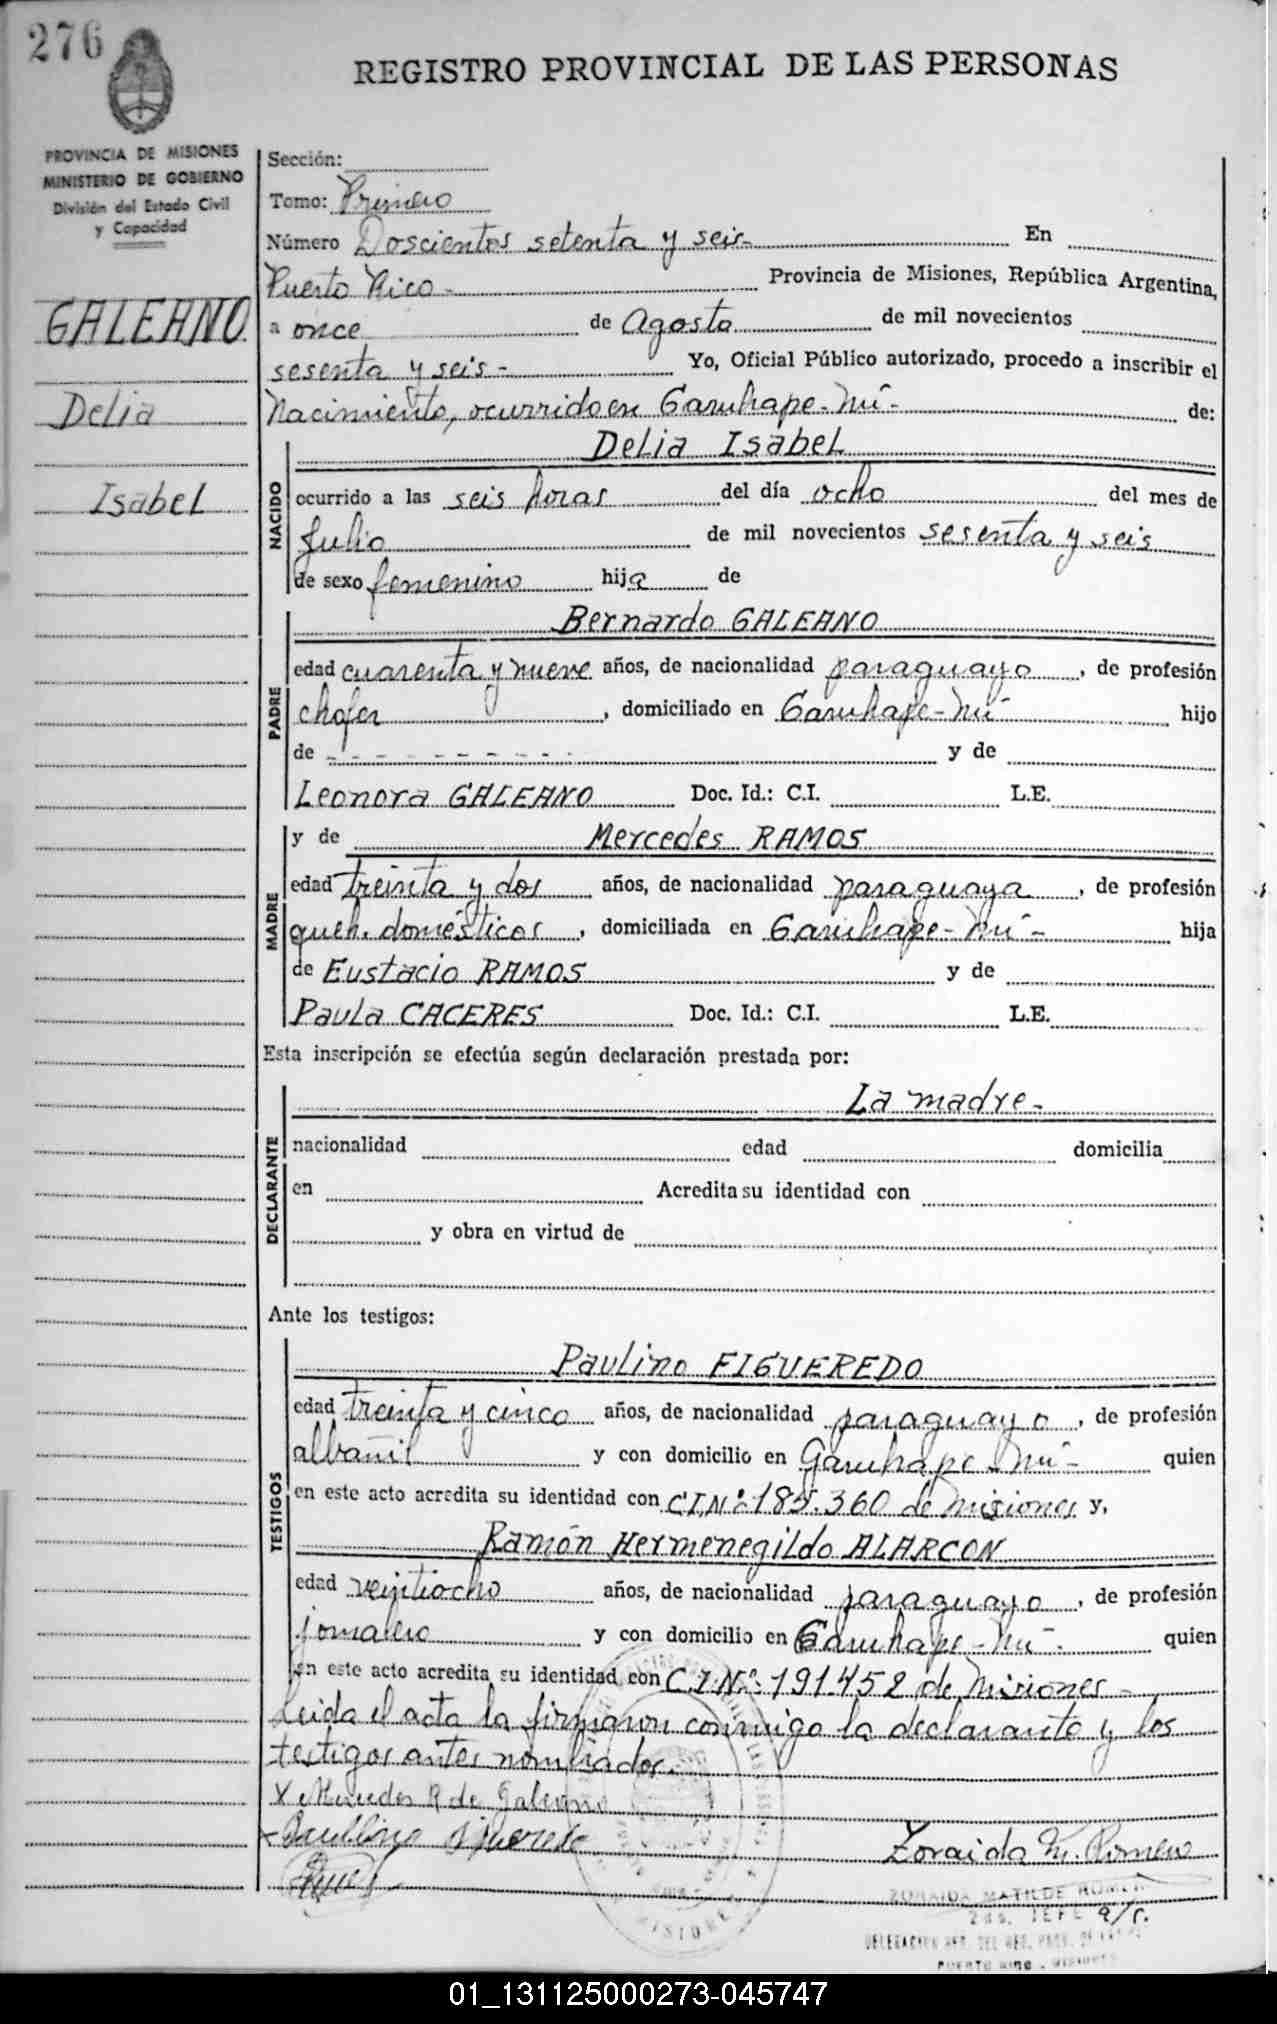 276
REGISTRO PROVINCIAL DE LAS PERSONAS
PROVINCIA DE MISIONES
MINISTERIO DE GOBIERNO
División del Estado Civil
y Capacidad
GALEANO
Delia
Isabel
Sección:
Tomo: Primero
Número Doscientos setenta y seis.- En
Puerto Rico - Provincia de Misiones, República Argentina,
a once de Agosto de mil novecientos
sesenta y seis - Yo, Oficial Público autorizado, procedo a inscribir el
Nacimiento, ocurrido en Garuhape-Mí- de:
NACIDO
Delia Isabel
ocurrido a las seis horas del día ocho del mes de
Julio de mil novecientos sesenta y seis
de sexo femenino hija de
PADRE
Bernardo GALEANO
edad cuarenta y nueve años, de nacionalidad paraguayo, de profesión
chofer, domiciliado en Garuhape-Mí- hijo
de - - - - - - - - - - y de
Leonora GALEANO Doc. Id.: C.I. L.E.
MADRE
y de Mercedes RAMOS
edad treinta y dos años, de nacionalidad paraguaya, de profesión
queh. domésticos, domiciliada en Garuhape-Mí- hija
de Eustacio RAMOS y de
Paula CACERES Doc. Id.: C.I. L.E.
Esta inscripción se efectúa según declaración prestada por:
DECLARANTE
La madre-
nacionalidad edad domicilia
en Acredita su identidad con
y obra en virtud de
Ante los testigos:
TESTIGOS
Paulino FIGUEREDO
edad treinta y cinco años, de nacionalidad paraguayo, de profesión
albañil y con domicilio en Garuhape-Mí- quien
en este acto acredita su identidad con C.I.Nº: 185.360 de Misiones y,
Ramón Hermenegildo ALARCON
edad veintiocho años, de nacionalidad paraguayo, de profesión
jornalero y con domicilio en Garuhape-Mí-. quien
en este acto acredita su identidad con C.I.Nº: 191.452 de Misiones-
Leida el acta la firmaron conmigo la declarante y los
testigos antes nombrados.
X Mercedes R de Galeano
Paulino Figueredo
Zoraida M. Romero
ZORAIDA MATILDE ROMERO
2da. JEFE a/c.
PUERTO RICO - MISIONES
01_131125000273-045747